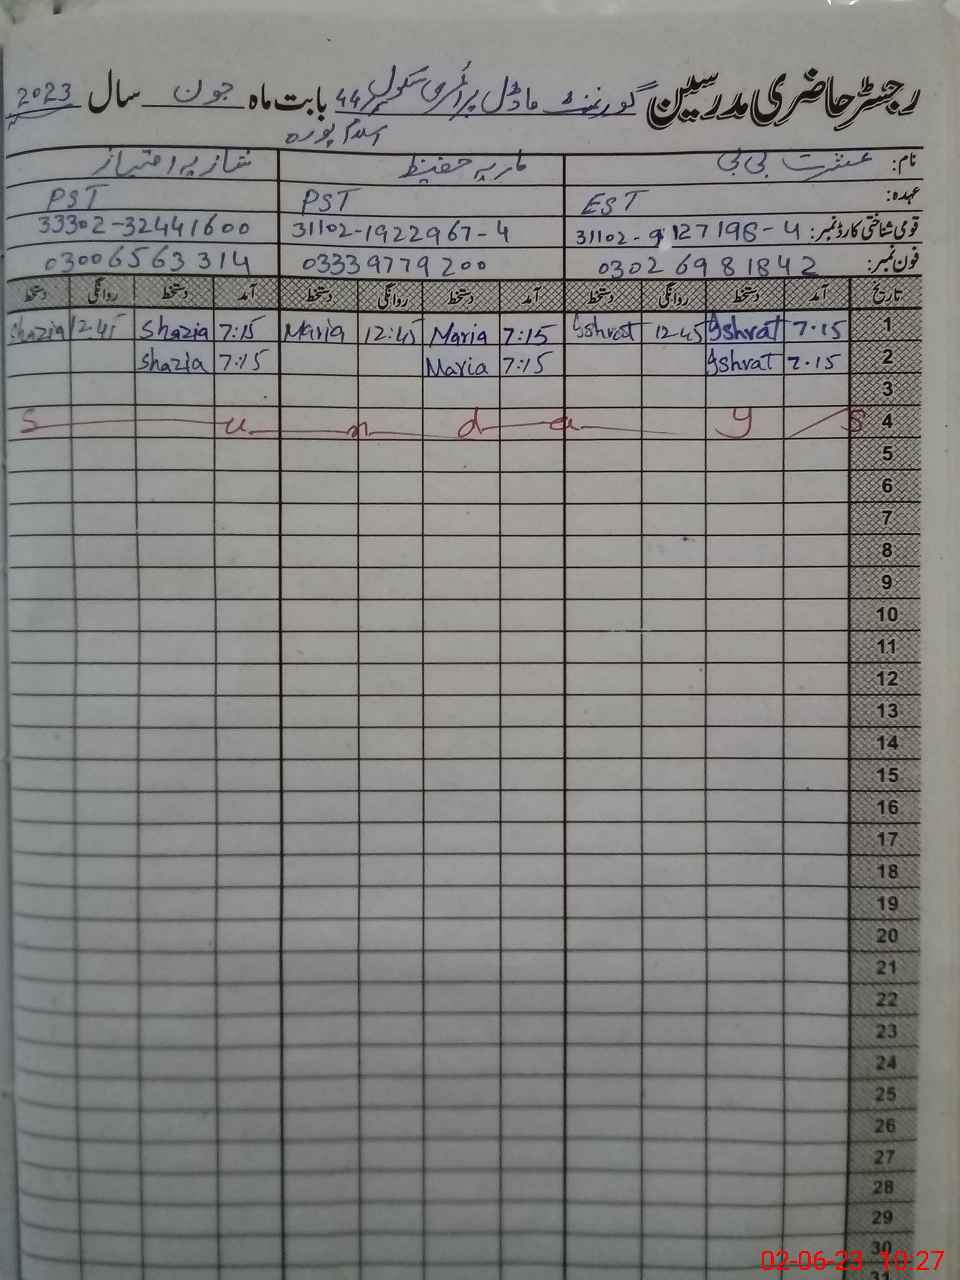 رجسٹر حاضری مدرسین گورنمنٹ ماڈل پرائمری سکول 44 بابت ماہ جون سال 2023
اسلام پورہ
نام: عشرت بی بی ماریہ حفیظ شازیہ امتیاز
عہدہ: EST PST PST
قومی شناختی کارڈ نمبر: 31102-9127198-4 31102-1922967-4 33302-32441600
فون نمبر: 03026981842 03339779200 03006563314
تاریخ آمد دستخط روانگی دستخط آمد دستخط روانگی دستخط آمد دستخط روانگی دستخط
1 7:15 Ishrat 12:45 Ishrat 7:15 Maria 12:45 Maria 7:15 Shazia 12:45 Shazia
2 7:15 Ishrat 7:15 Maria 7:15 Shazia
3
4 S u n d a y S
5
6
7
8
9
10
11
12
13
14
15
16
17
18
19
20
21
22
23
24
25
26
27
28
29
30
31
02-06-23 10:27